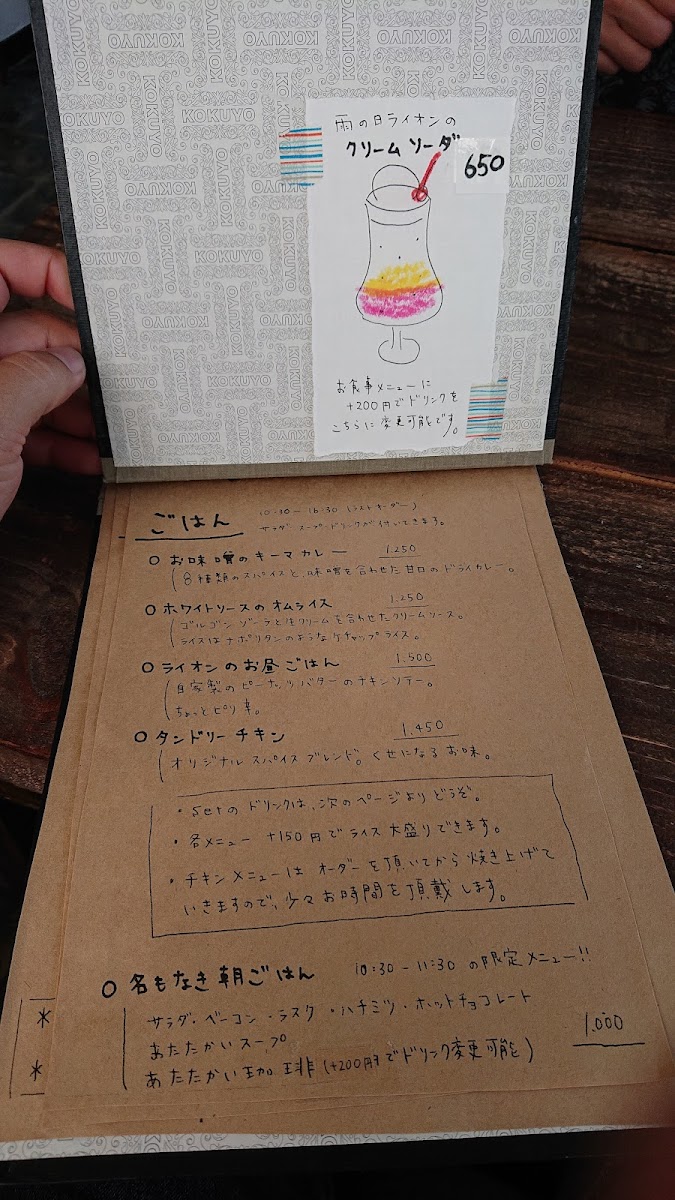 雨の日ライオンの
クリームソーダ
650
お食事メニューに
+200円でドリンクを
こちらに変更可能です。
ごはん
10:30-16:30 (ラストオーダー)
サラダ・スープ・ドリンクが付いてきます。
○ お味噌のキーマカレー 1.250
8種類のスパイスと、味噌を合わせた甘口のドライカレー。
○ ホワイトソースのオムライス 1.250
ゴルゴンゾーラと生クリームを合わせたクリームソース。
ライスはナポリタンのようなケチャップライス。
○ ライオンのお昼ごはん 1.500
自家製のピーナッツバターのチキンソテー。
ちょっとピリ辛。
○ タンドリーチキン 1.450
オリジナルスパイスブレンド。くせになるお味。
・setのドリンクは、次のページよりどうぞ。
・各メニュー +150円でライス大盛りできます。
・チキンメニューはオーダーを頂いてから焼き上げて
いきますので、少々お時間を頂戴します。
○ 名もなき朝ごはん 10:30-11:30の限定メニュー!!
サラダ・ベーコン・ラスク・ハチミツ・ホットチョコレート
あたたかいスープ
あたたかい珈琲 (+200円でドリンク変更可能) 1.000
*
*
KOKUYO